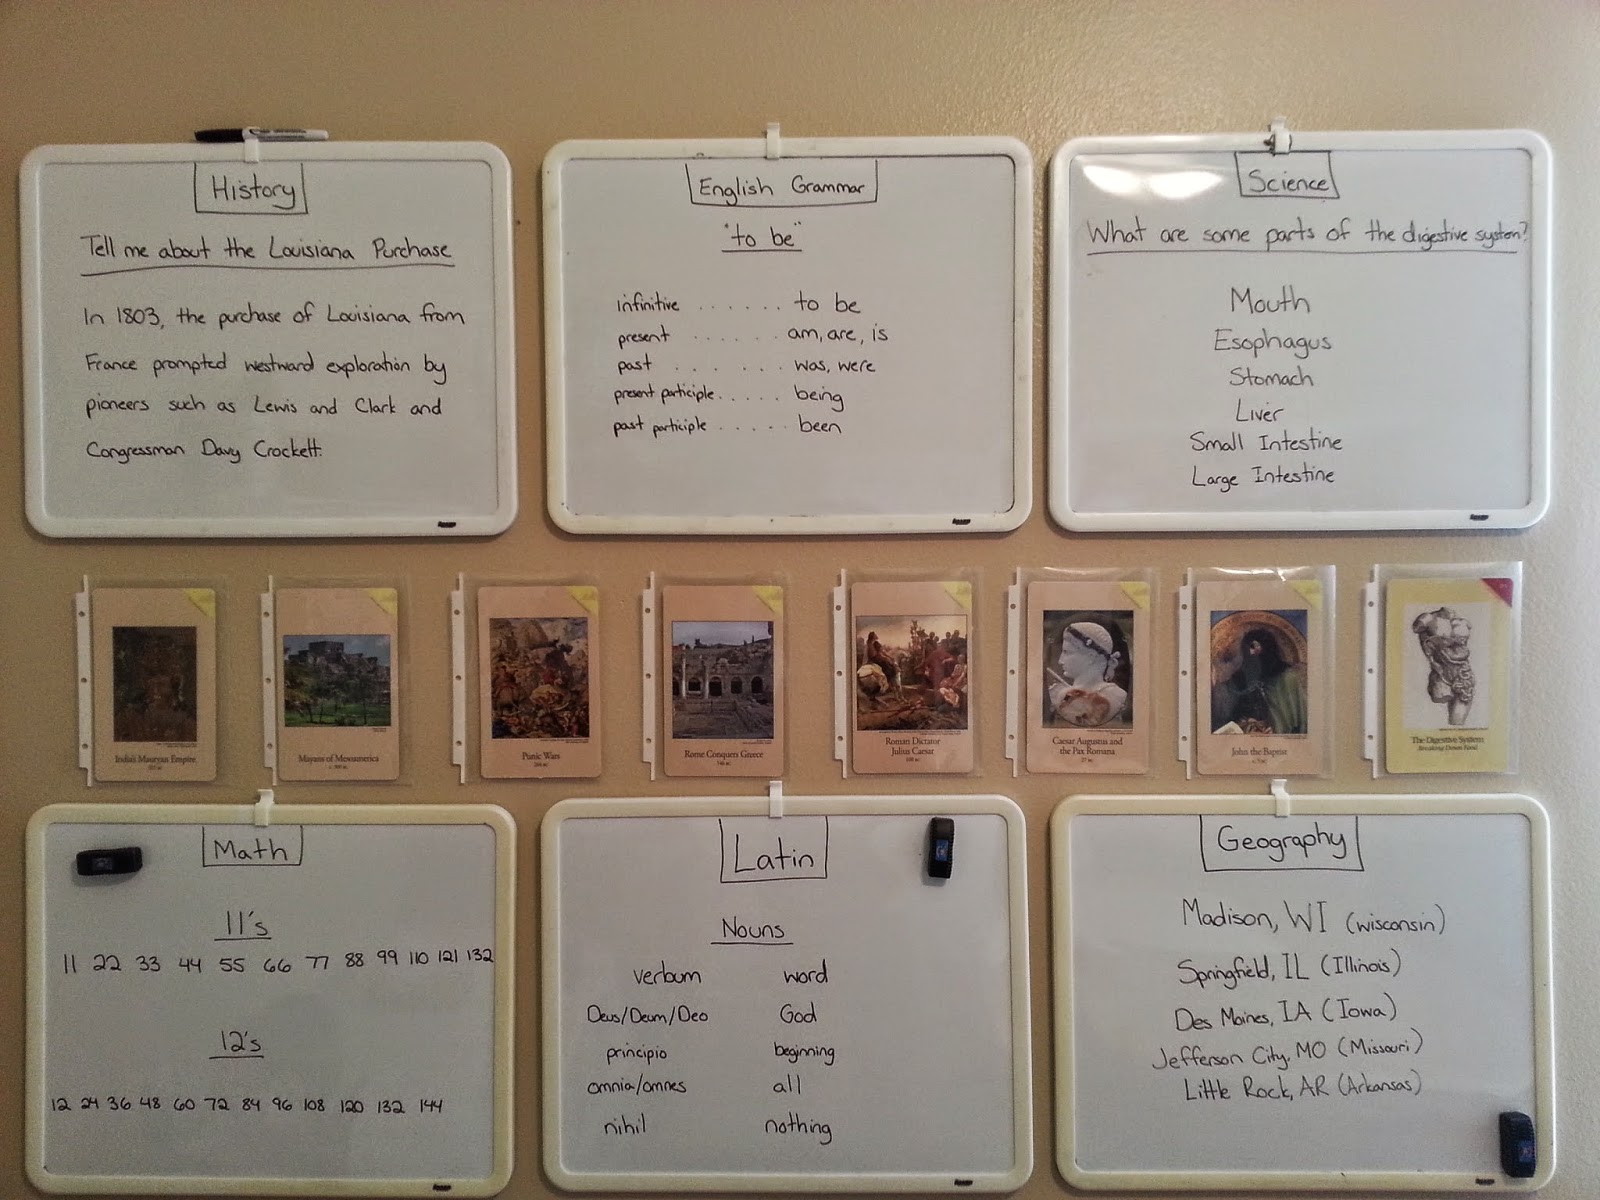 History
Tell me about the Louisiana Purchase
In 1803, the purchase of Louisiana from
France prompted westward exploration by
pioneers such as Lewis and Clark and
Congressman Davy Crockett.
English Grammar
"to be"
infinitive ...... to be
present ...... am, are, is
past ...... was, were
present participle..... being
past participle ..... been
Science
What are some parts of the digestive system?
Mouth
Esophagus
Stomach
Liver
Small Intestine
Large Intestine
India's Mauryan Empire
Mayans of Mesoamerica
Punic Wars
Rome Conquers Greece
Roman Dictator
Julius Caesar
Caesar Augustus and
the Pax Romana
John the Baptist
The Digestive System
Breaking Down Food
Math
11's
11 22 33 44 55 66 77 88 99 110 121 132
12's
12 24 36 48 60 72 84 96 108 120 132 144
Latin
Nouns
verbum word
Deus/Deum/Deo God
principio beginning
omnia/omnes all
nihil nothing
Geography
Madison, WI (wisconsin)
Springfield, IL (Illinois)
Des Moines, IA (Iowa)
Jefferson City, MO (Missouri)
Little Rock, AR (Arkansas)